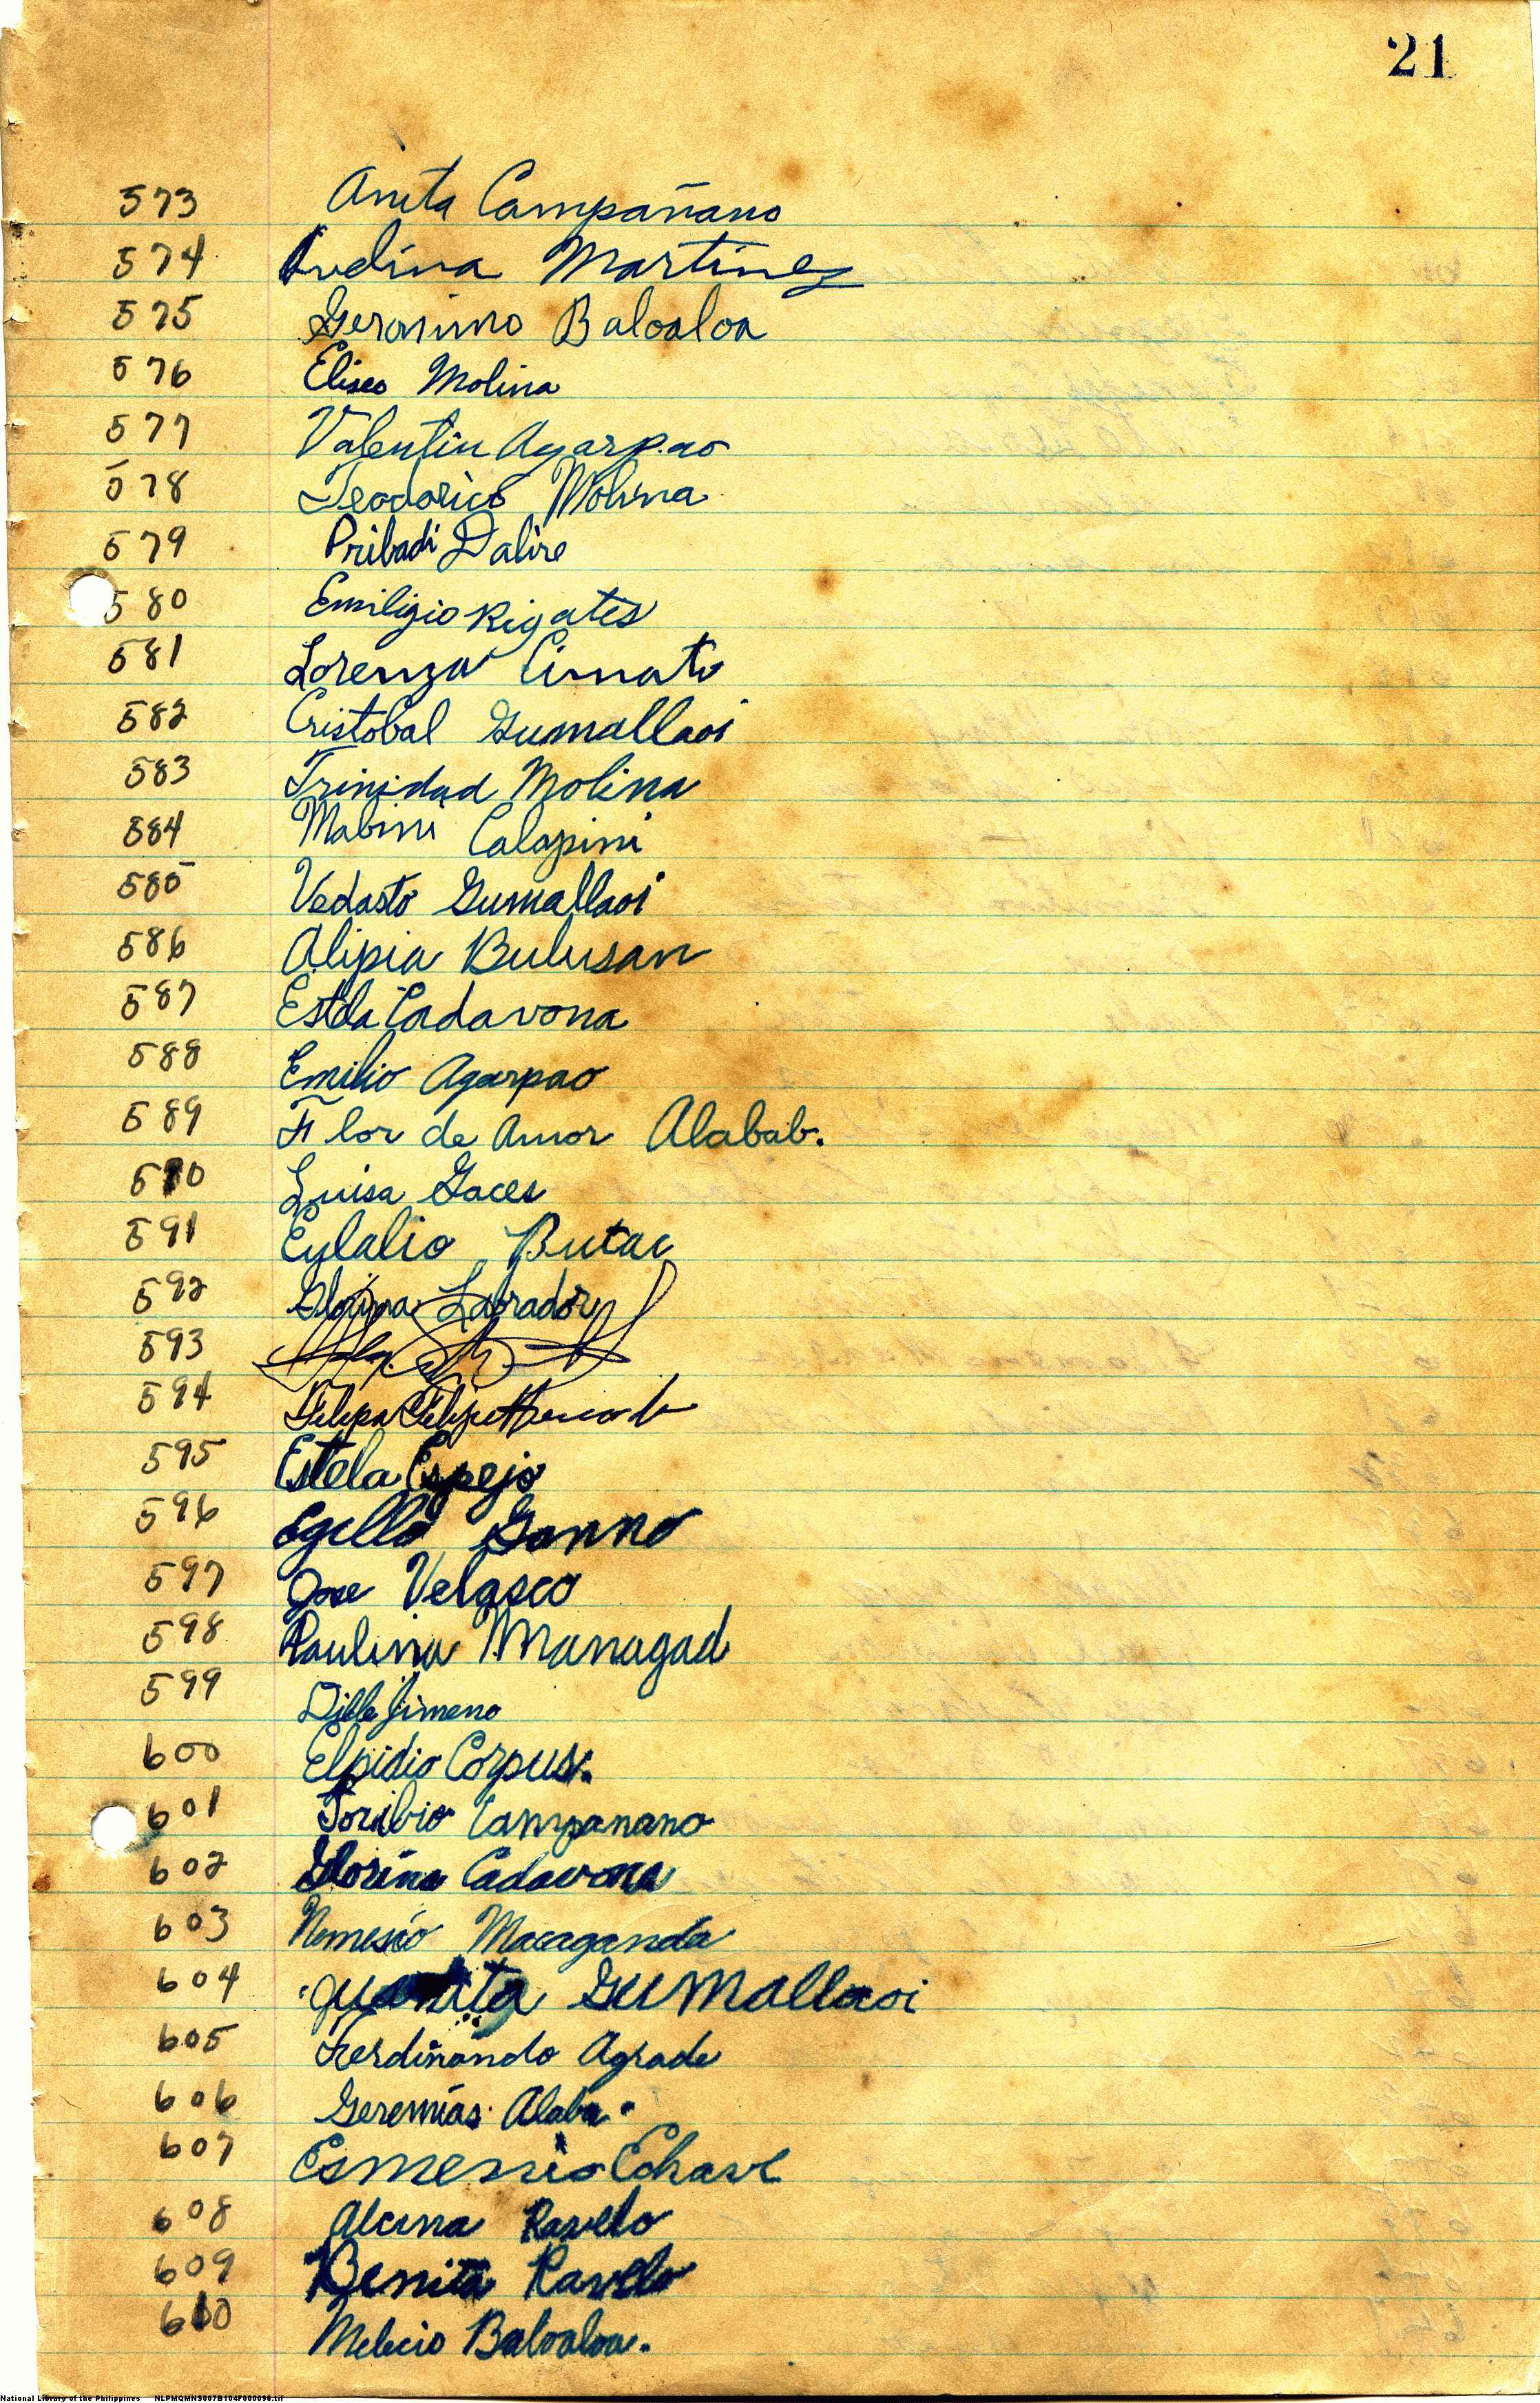 21
573 Anita Campañano
574 Avelina Martinez
575 Geronimo Baloaloa
576 Eliseo Molina
577 Valentin Agarpao
578 Teodorico Molina
579 Pribadi Dalire
580 Emiligio Rigates
581 Lorenza Cinato
582 Cristobal Gumallaoi
583 Trinidad Molina
584 Mabini Calapini
585 Vedasto Gumallaoi
586 Alipia Bulusan
587 Estela Cadavona
588 Emilio Agarpao
589 Flor de Amor Alabab.
590 Luisa Gaces
591 Eylalio Butac
592 Labrador
593
594 Felipa
595 Estela Espejo
596 Ganno
597 Jose Velasco
598 Paulina Managad
599 Jimeno
600 Elpidio Corpus.
601 Toribio Campanano
602 Glorina Cadavona
603 Nemesio Macaganda
604 Juanita Gumallaoi
605 Ferdinando Agrade
606 Geremias Alaba.
607 Esmenio Echave
608 Alcina Ravelo
609 Benita Ravelo
610 Melecio Baloaloa.
National Library of the Philippines NLPMQMNS007B104F000096.tif